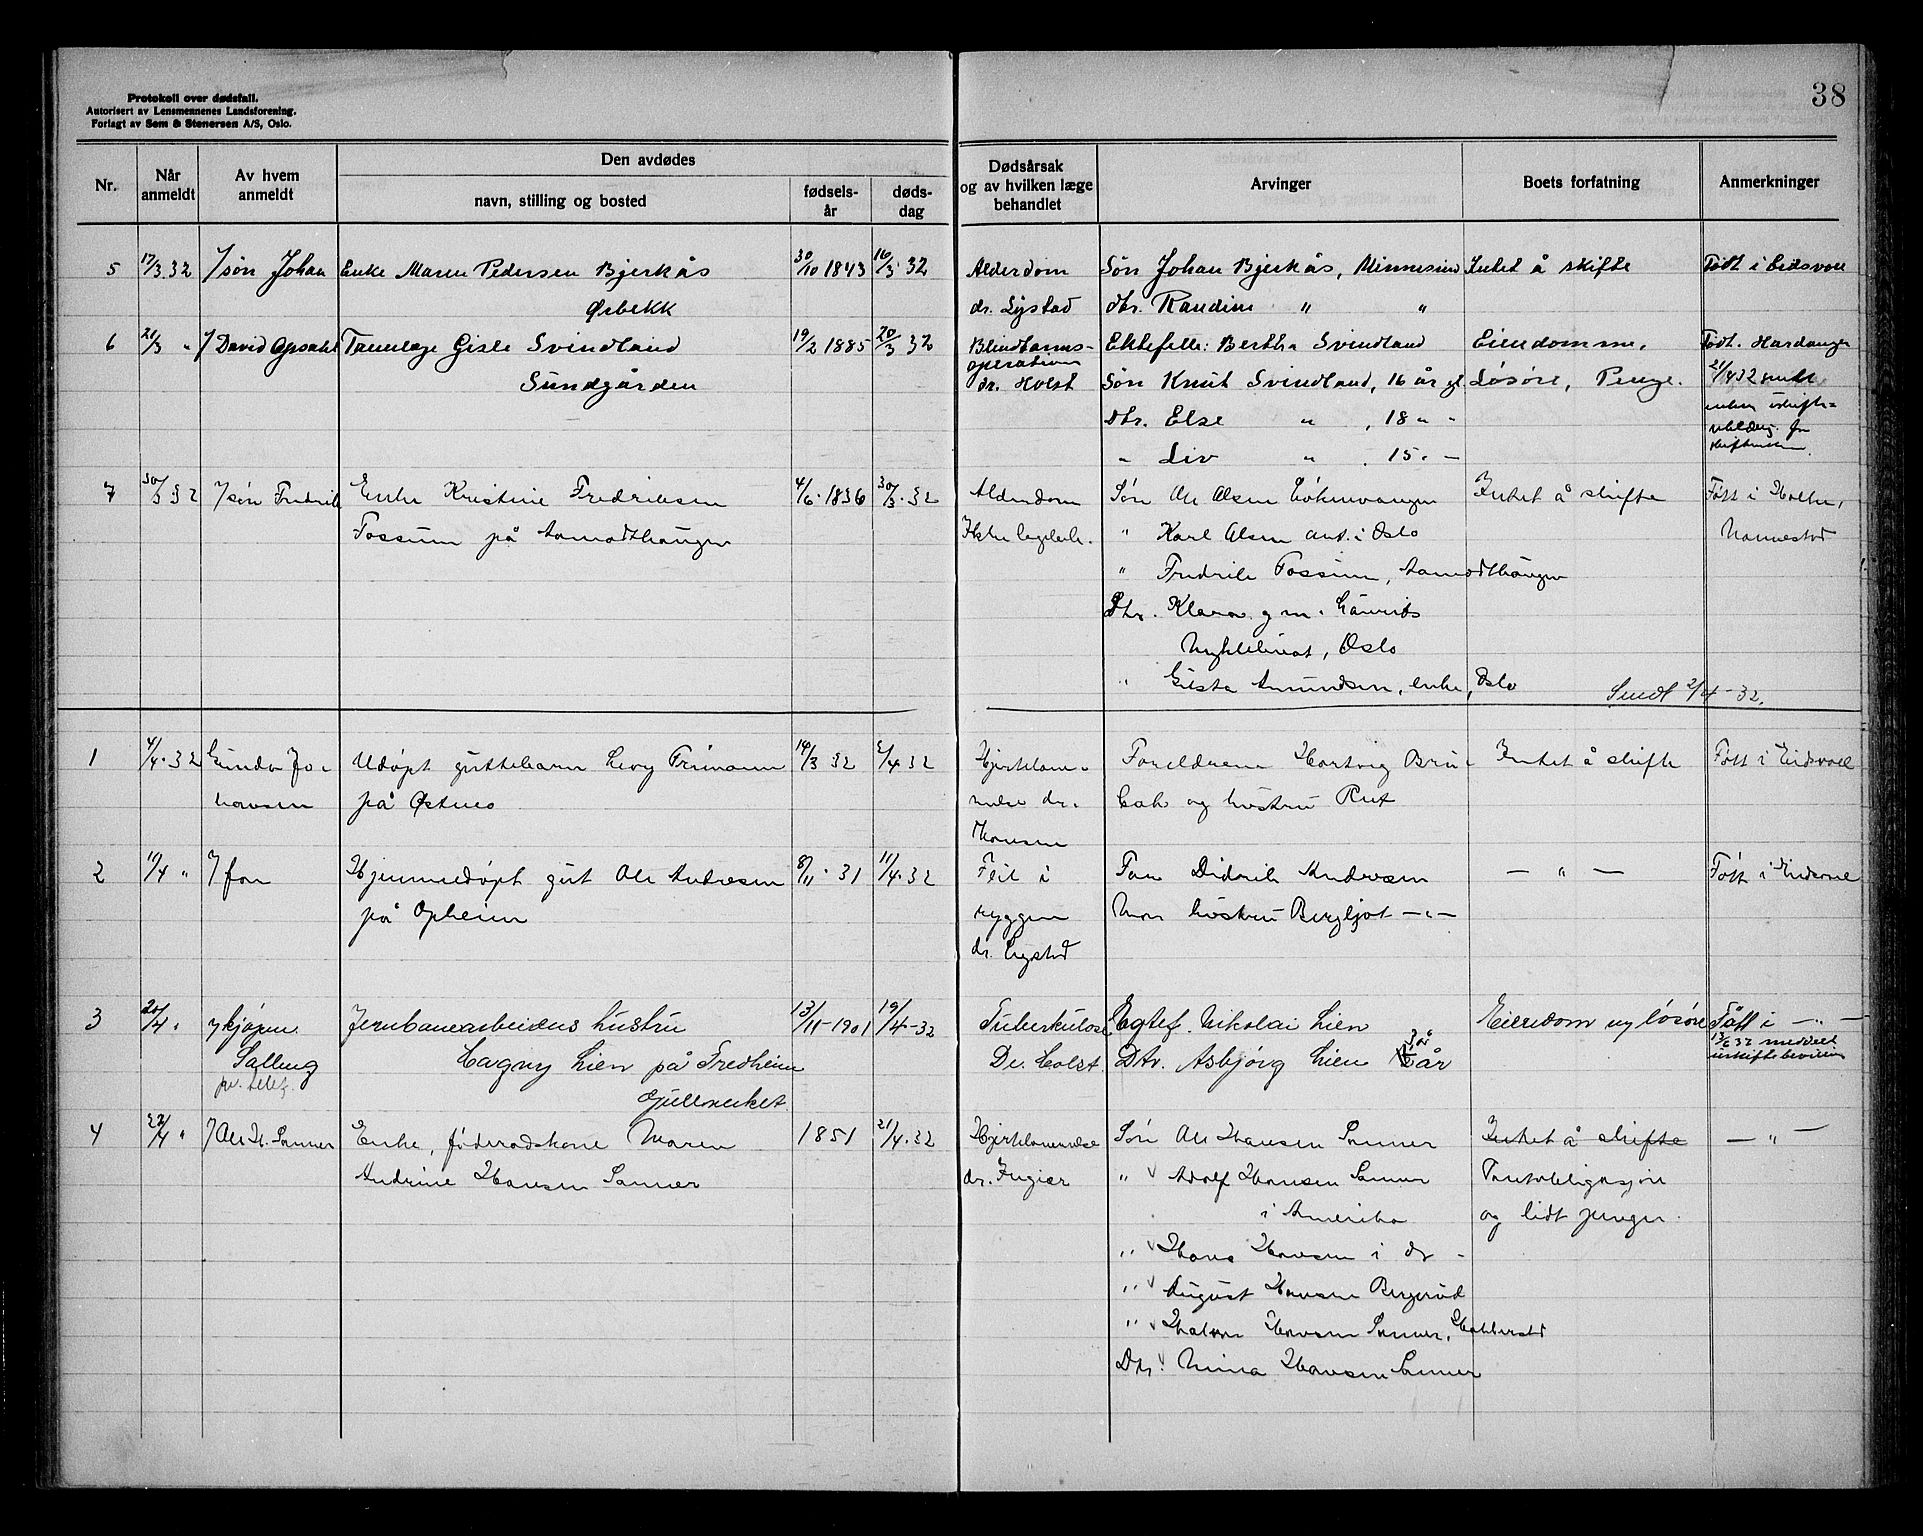 Protokoll over dødsfall.
Autorisert av Lensmennenes Landsforening.
Forlagt av Sem & Stenersen A/S, Oslo.
38
Nr.
Når anmeldt
Av hvem anmeldt
Den avdødes
navn, stilling og bosted
fødsels-år
døds-dag
Dødsårsak og av hvilken læge behandlet
Arvinger
Boets forfatning
Anmerkninger
5 17/3 32 søn Johan Enke Maren Pedersen Bjerkås 30/10 1843 16/3 32 Alderdom Søn Johan Bjerkås, Minnesund Intet å skifte Født i Eidsvoll
Ørbekk dr. Lystad dtr. Randine " "
6 21/3 " David Opsahl Tannlæge Gisle Svindland 19/2 1885 20/3 32 Blindtarms- Ektefelle: Bertha Svindland Eiendomme, Født. Hardanger
Sundgården operation
dr. Holst Søn Knut Svindland, 16 år gl. Løsøre, Penge. 2/4 32 sendt
Dtr. Else " , 18 " "
" Liv " . 15. -
7 30/3 32 søn Fredrik Enke Kristine Fredriksen 4/6. 1836 30/3. 32 Alderdom Søn Ole Olsen Intet å skifte Født i Holter,
Fossum på Aamodthaugen Ikke Karl Olsen ant. i Oslo Nannestad
" Fredrik Fossum, Aamodthaugen
Dtr. Klara g.m. Laurits
Oslo
" Amundsen, enke, Oslo Sendt 2/4-32.
1 4/4.32 Gunda Jo- Udøpt guttebarn Levy Frimann 14/3 32 2/4 32 Hjertelam- Foreldrene Hartvig Intet å skifte Født i Eidsvoll
hansen på Østnes melse dr. og hustru Rut
Hansen
2 11/4 " far Hjemmedøpt gut Ole Andresen 8/11. 31 11/4.32 Feil i Far Didrik Andresen — " — Født i Eidsvoll
på Opheim ryggen Mor hustru Bergljot —"—
dr. Lystad
3 20/4 " Jernbanearbeiders hustru 13/11-1901 19/4-32 Tuberkulose Egtef. Nikolai Lien Eiendom og løsøre Født i —"—
Salling Dagny Lien på Fredheim Dr. Holst. Dtr. Asbjørg Lien år 13/6 32 meddelt uskiftebevilling
pr. telef. Gullverket
4 22/4 " Ole H. Sanner Enke, føderådskone Maren 1851 21/4.32 Hjertelammelse Søn Ole Hansen Sanner Intet å skifte — " —
Andrine Hansen Sanner dr. Fugier " Adolf Hansen Sanner Pantobligasjon
i Amerika og lidt penger.
" Hans Hansen i do -
" August Hansen Bergerud
" Halvor Hansen Sanner,
Dtr. Mina Hansen Sanner